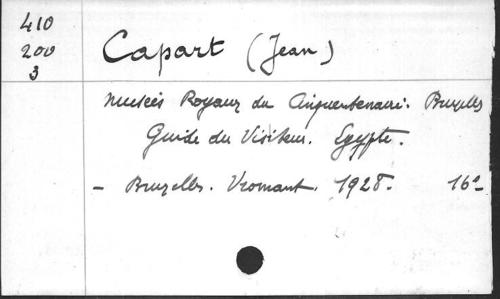 410
200
3
Capart (Jean)
Musées Royaux du Cinquantenaire. Bruxelles
Guide du Visiteur. Egypte.
- Bruxelles. Vromant. 1928. 16°